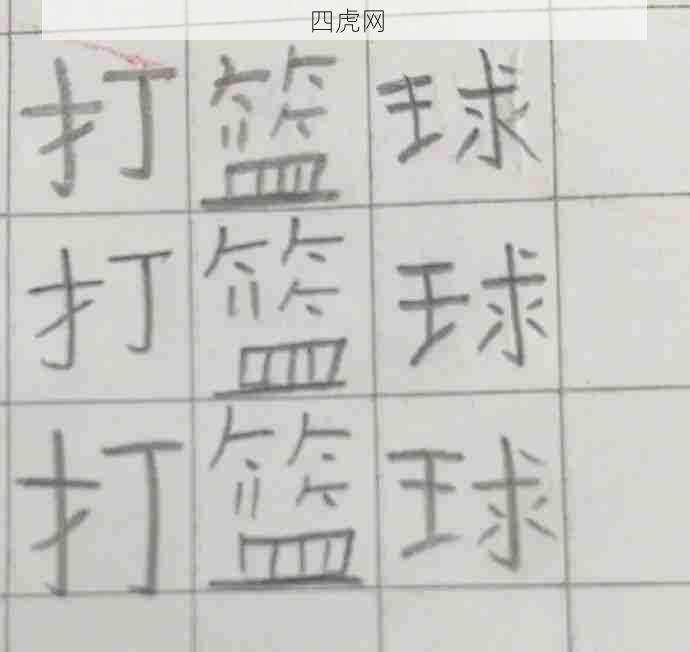 四虎网
打篮球
打篮球
打篮球